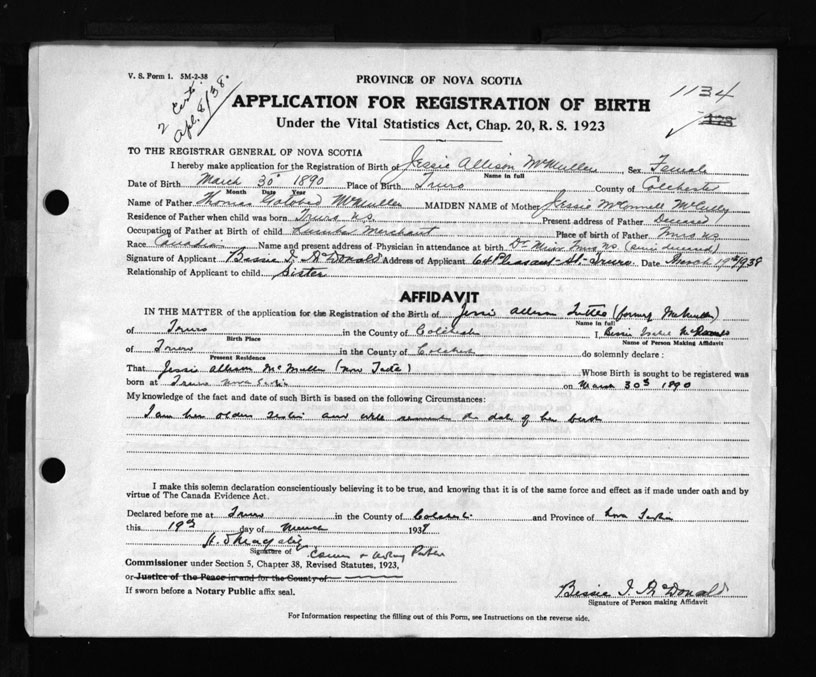 V. S. Form 1. 5M-2-38
2 Cert.
Apl. 8/38.
PROVINCE OF NOVA SCOTIA
1134
APPLICATION FOR REGISTRATION OF BIRTH
Under the Vital Statistics Act, Chap. 20, R. S. 1923
TO THE REGISTRAR GENERAL OF NOVA SCOTIA
I hereby make application for the Registration of Birth of Jessie Allison McMullen Sex Female
Name in full
Date of Birth March 30th 1890 Place of Birth Truro County of Colchester
Month Date Year
Name of Father Thomas McMullen MAIDEN NAME of Mother Jessie McConnell McCully
Residence of Father when child was born Truro N.S. Present address of Father Deceased
Occupation of Father at Birth of child Lumber Merchant Place of birth of Father Truro N.S.
Race Canadian Name and present address of Physician in attendance at birth Dr Truro N.S. (since deceased)
Signature of Applicant Bessie I. McDonald Address of Applicant 64 Pleasant St. Truro. Date March 19th/1938
Relationship of Applicant to child Sister
AFFIDAVIT
IN THE MATTER of the application for the Registration of the Birth of Jessie Allison (formerly McMullen)
Name in full
of Truro in the County of Colchester I, Bessie
Birth Place Name of Person Making Affidavit
of Truro in the County of Colchester do solemnly declare:
Present Residence
That Jessie Allison McMullen (now ) Whose Birth is sought to be registered was
born at Truro Nova Scotia on March 30th 1890
My knowledge of the fact and date of such Birth is based on the following Circumstances:
I am her older sister and well remember the date of her birth
I make this solemn declaration conscientiously believing it to be true, and knowing that it is of the same force and effect as if made under oath and by
virtue of The Canada Evidence Act.
Declared before me at Truro in the County of Colchester and Province of Nova Scotia
this 19th day of March 1938
Signature of
Commissioner under Section 5, Chapter 38, Revised Statutes, 1923,
or Justice of the Peace in and for the County of
If sworn before a Notary Public affix seal.
Bessie I. McDonald
Signature of Person making Affidavit
For Information respecting the filling out of this Form, see Instructions on the reverse side.